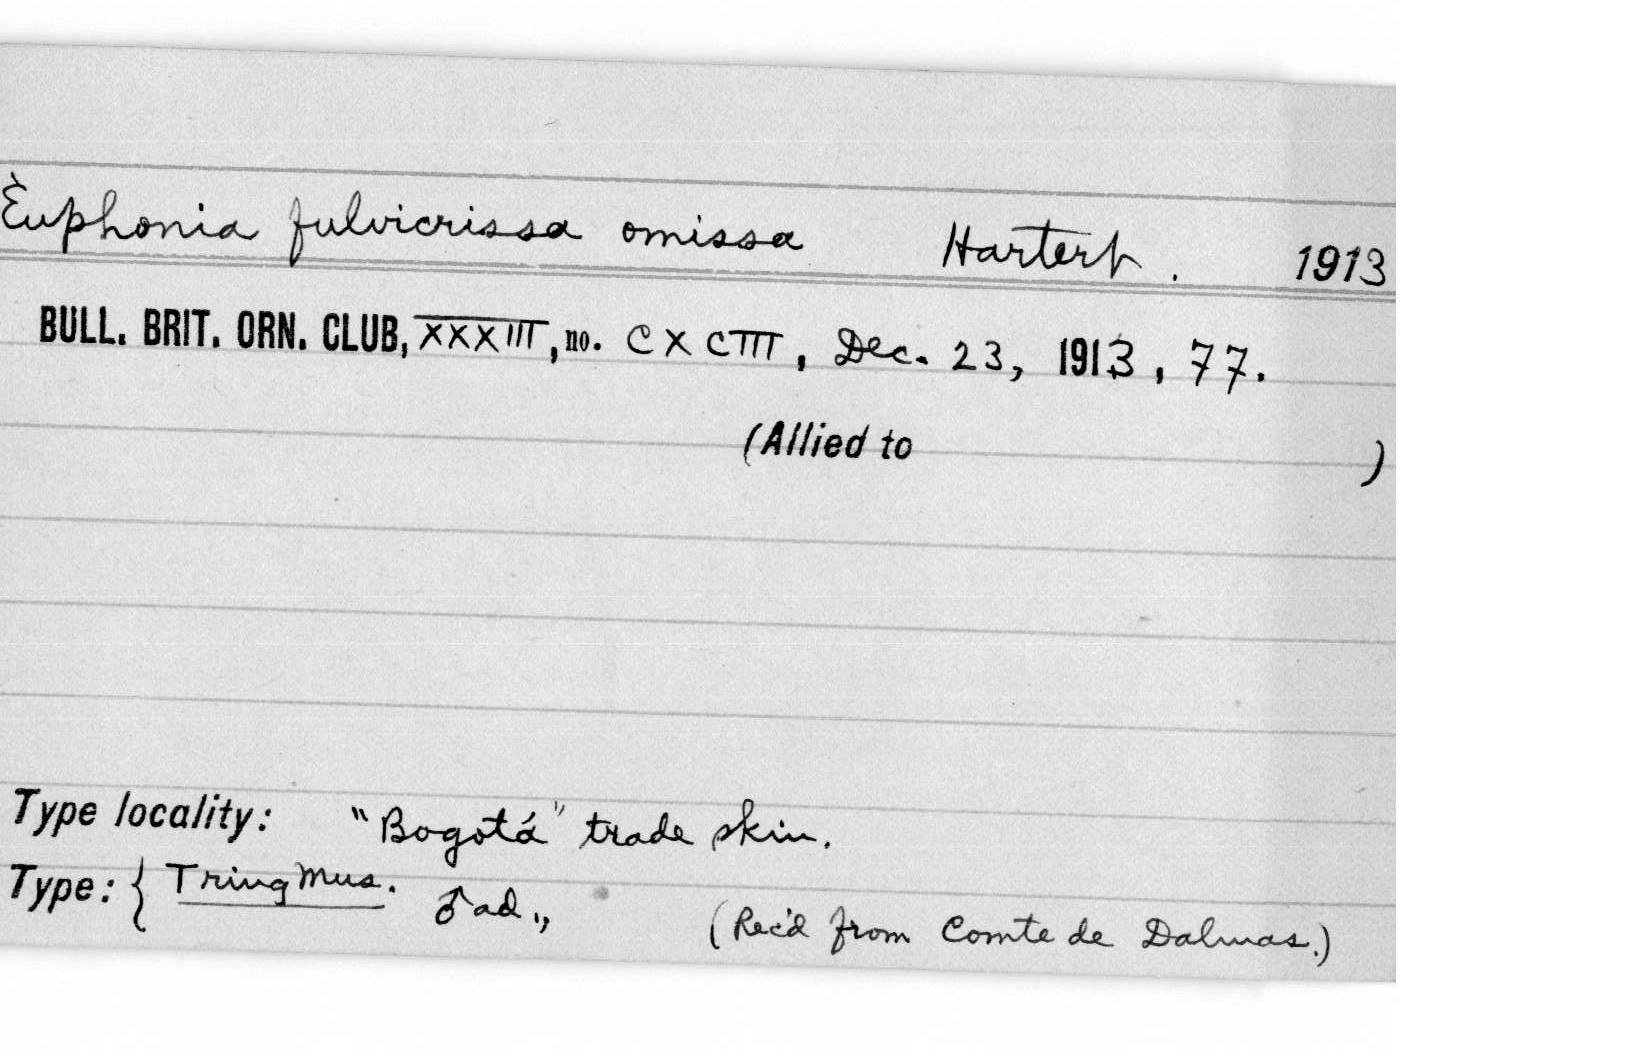 Euphonia fulvicrissa omissa Hartert. 1913
BULL. BRIT. ORN. CLUB, XXXIII, no. CXCIII, Dec. 23, 1913, 77.
(Allied to )
Type locality: "Bogotá" trade skin.
Type: { Tring Mus. ♂ ad.,
(Rec'd from Comte de Dalmas.)